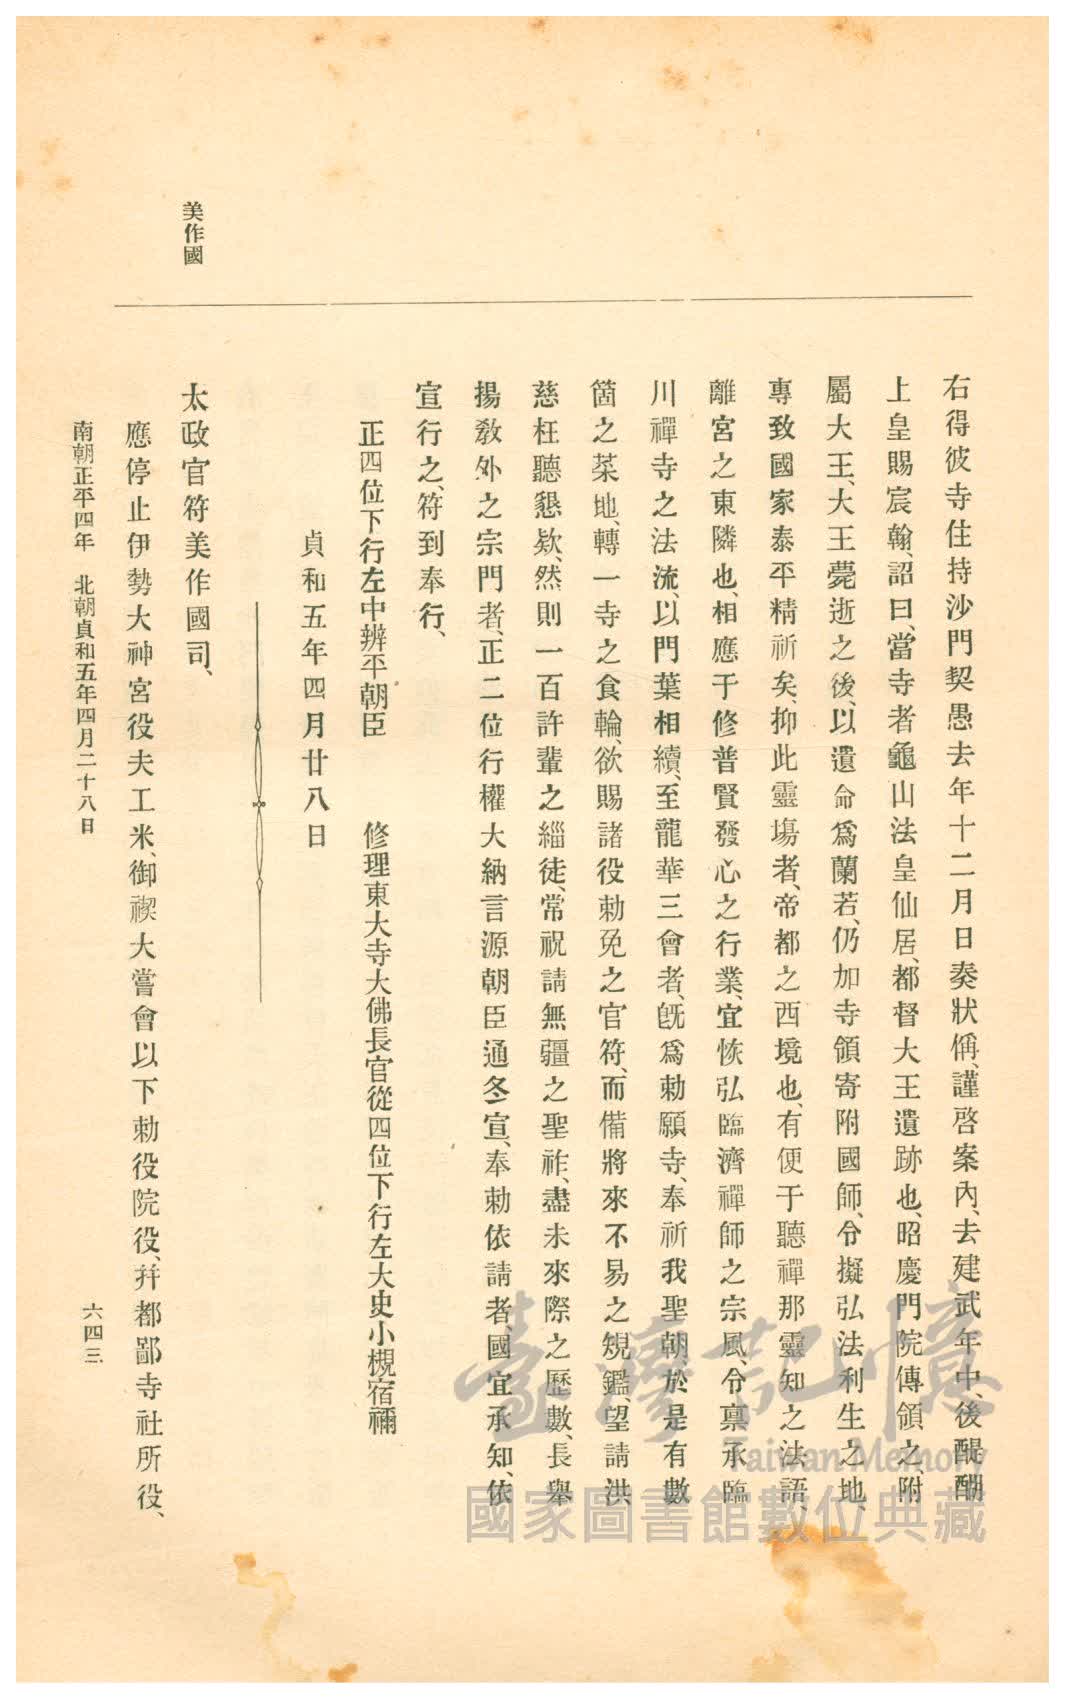 右得彼寺住持沙門契愚去年十二月日奏狀偁、謹啓案內、去建武年中、後醍醐
上皇賜宸翰、詔曰、當寺者龜山法皇仙居、都督大王遺跡也、昭慶門院傳領之、附
屬大王、大王薨逝之後、以遺命爲蘭若、仍加寺領寄附國師、令擬弘法利生之地、
專致國家泰平精祈矣、抑此靈塲者、帝都之西境也、有便于聽禪那靈知之法語、
離宮之東隣也、相應于修普賢發心之行業、宜恢弘臨濟禪師之宗風、令稟承臨
川禪寺之法流、以門葉相續、至龍華三會者、旣爲勅願寺、奉祈我聖朝、於是有數
箇之菜地、轉一寺之食輪、欲賜諸役勅免之官符、而備將來不易之規鑑、望請洪
慈枉聽懇欵、然則一百許輩之緇徒、常祝請無疆之聖祚、盡未來際之歷數、長擧
揚敎外之宗門者、正二位行權大納言源朝臣通冬宣、奉勅依請者、國宜承知、依
宣行之、符到奉行、
正四位下行左中辨平朝臣　　修理東大寺大佛長官從四位下行左大史小槻宿禰
貞和五年四月廿八日
美作國
太政官符美作國司、
應停止伊勢大神宮役夫工米、御禊大嘗會以下勅役院役、幷都鄙寺社所役、
南朝正平四年　北朝貞和五年四月二十八日
六四三
臺灣記憶
Taiwan Memory
國家圖書館數位典藏